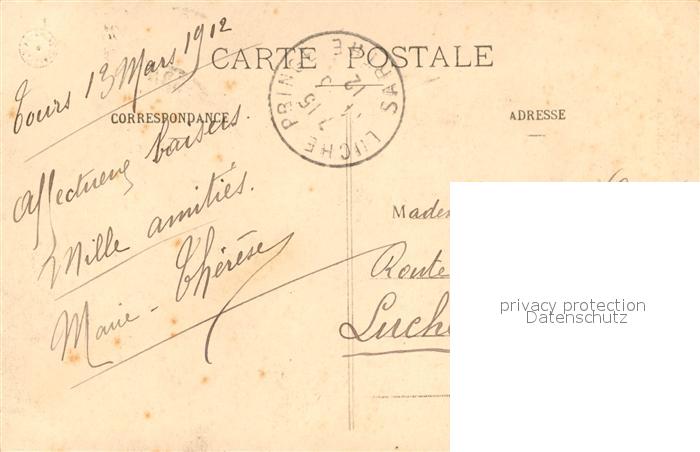 CARTE POSTALE
CORRESPONDANCE
ADRESSE
Tours 13 Mars 1912
Affectueux baisers.
Mille amitiés.
Marie-Thérèse
LUCHE PRINGÉ
SARTHE
15
12
Made
Route
Luché
privacy protection
Datenschutz